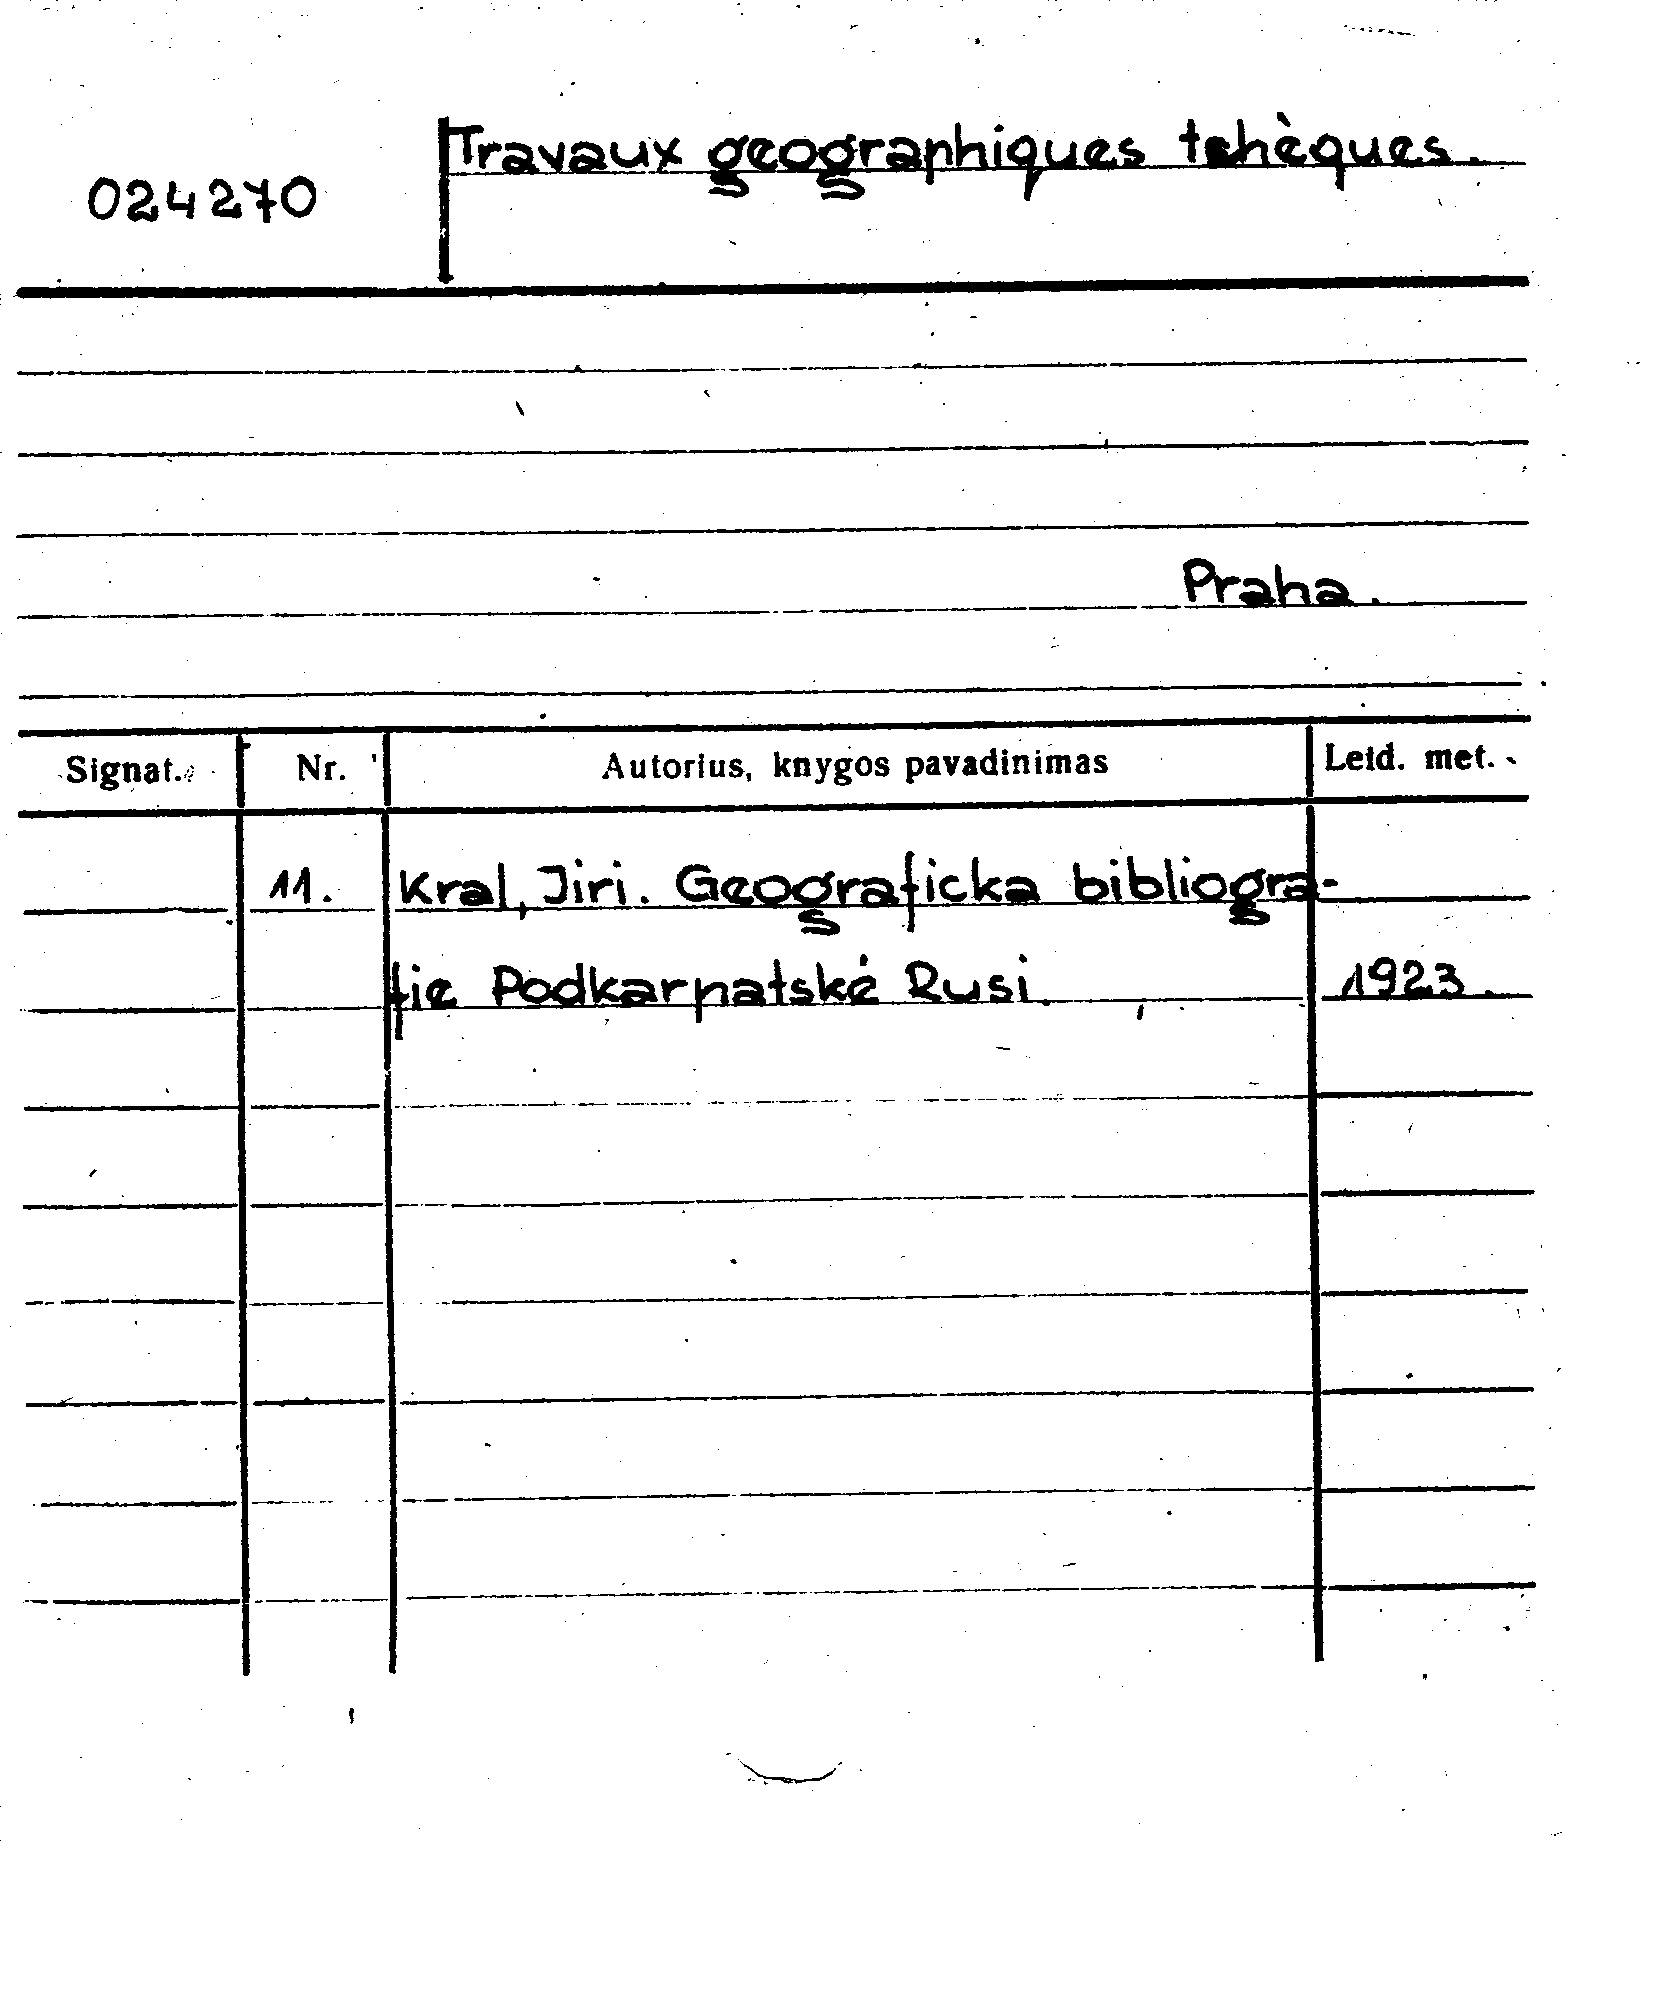 Travaux geographiques tchèques.
024270
Praha.
Signat. Nr. Autorius, knygos pavadinimas Leid. met.
11. Kral, Jiri. Geograficka bibliogra-
fie Podkarpatské Rusi. 1923.